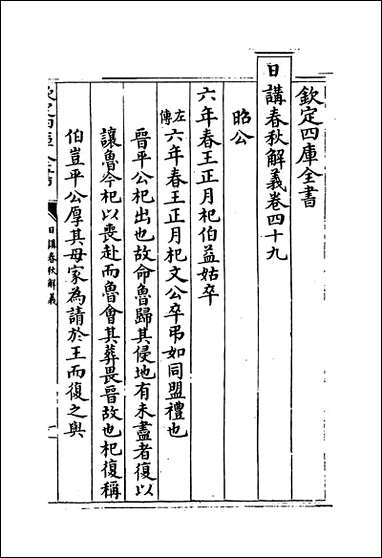 欽定四庫全書
日講春秋解義卷四十九
昭公
六年春王正月杞伯益姑卒
左傳六年春王正月杞文公卒弔如同盟禮也
晉平公杞出也故命魯歸其侵地有未盡者復以
讓魯今杞以喪赴而魯會其葬畏晉故也杞復稱
伯豈平公厚其母家為請於王而復之與
日講春秋解義